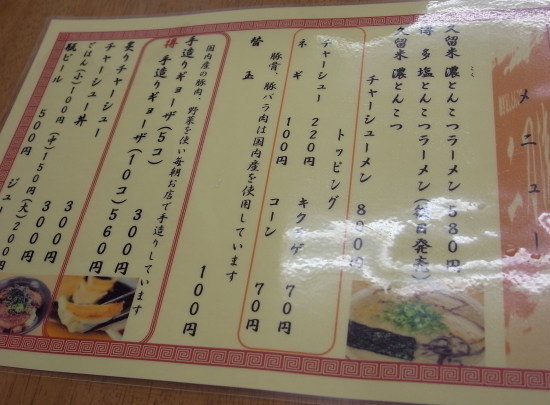 メニュー
久留米 濃とんこつラーメン 580円
博多 塩とんこつラーメン(毎日発売)
久留米 濃とんこつ
チャーシューメン 800円
トッピング
チャーシュー 220円 キクラゲ 70円
ネギ 100円 コーン 70円
替玉 100円
豚骨、豚バラ肉は国内産を使用しています
国内産の豚肉、野菜を使い毎朝お店で手造りしています
手造りギョーザ(5コ) 300円
得 手造りギョーザ(10コ) 560円
炙りチャーシュー 300円
チャーシュー丼 300円
ごはん(小)100円(中)150円(大)200円
瓶ビール 500円 ジュー